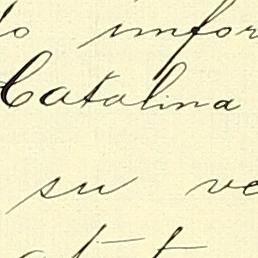 lo infor
Catalina
su ve